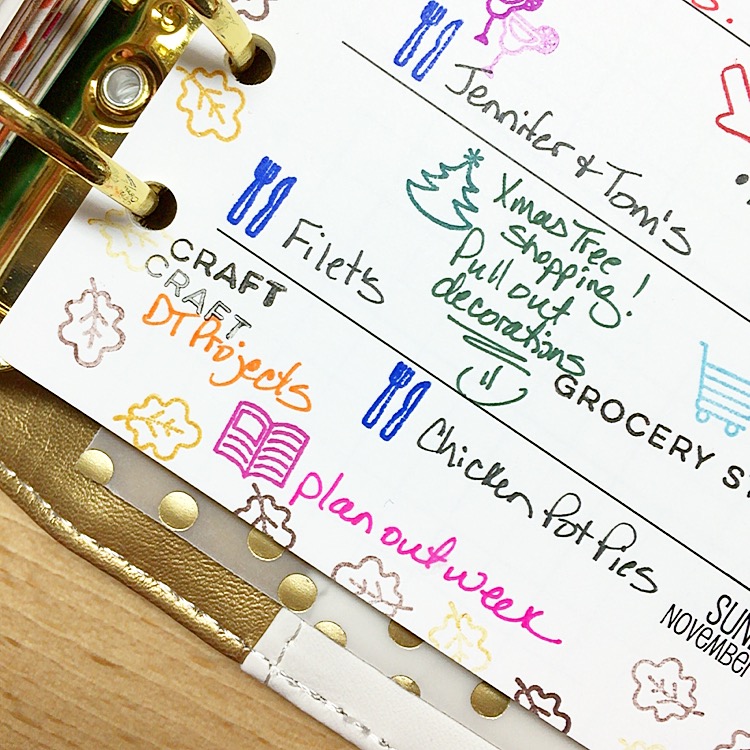 Jennifer & Tom's
Filets
Xmas Tree
Shopping!
Pull out
decorations
CRAFT
CRAFT
DT Projects
GROCERY
Chicken Pot Pies
plan out week
NOVEMBER